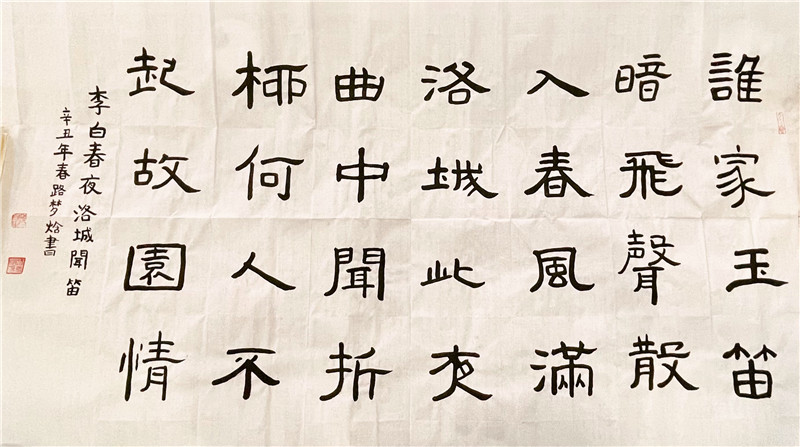 誰家玉笛
暗飛聲散
入春風滿
洛城此夜
曲中聞折
柳何人不
起故園情
李白春夜洛城聞笛
辛丑年春路梦書